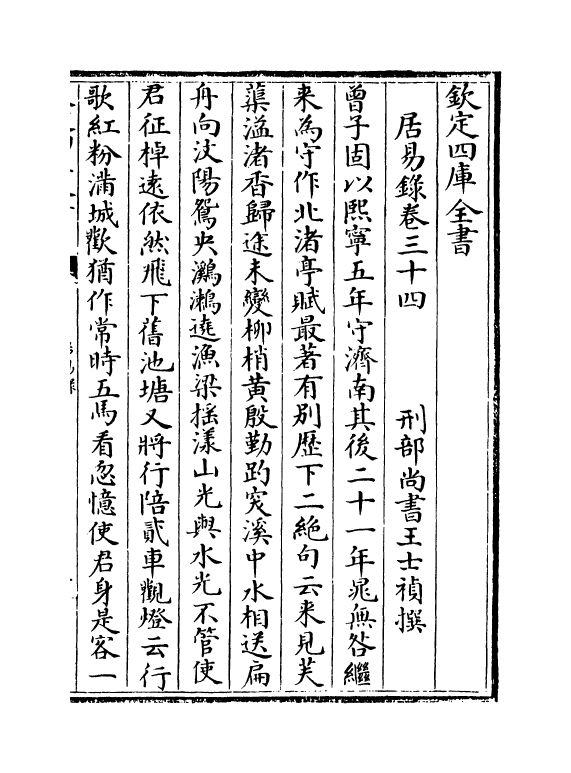 欽定四庫全書
居易錄卷三十四　刑部尚書王士禎撰
曾子固以熙寧五年守濟南其後二十一年晁無咎繼
来為守作北渚亭賦最著有别歴下二絶句云来見芙
蕖溢渚香歸途未變柳梢黄殷勤趵突溪中水相送扁
舟向汶陽鴛央鸂鶒遶漁梁揺漾山光與水光不管使
君征棹逺依然飛下舊池塘又將行陪貳車觀燈云行
歌紅粉滿城歡猶作常時五馬看忽憶使君身是客一